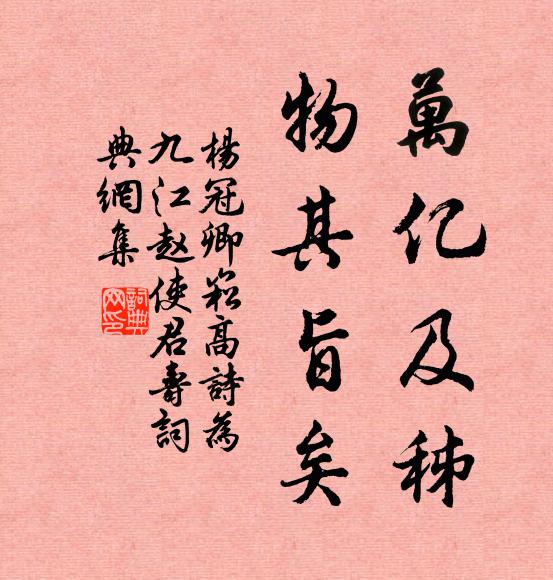 萬亿及秭
物其旨矣
楊冠卿崧高詩為
九江赵使君壽詞
典網集
詞典網印